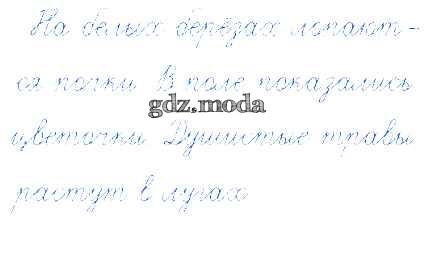 На белых берёзах лопают-
ся почки В поле показались
gdz.moda
цветочки Душистые травы
растут в лугах